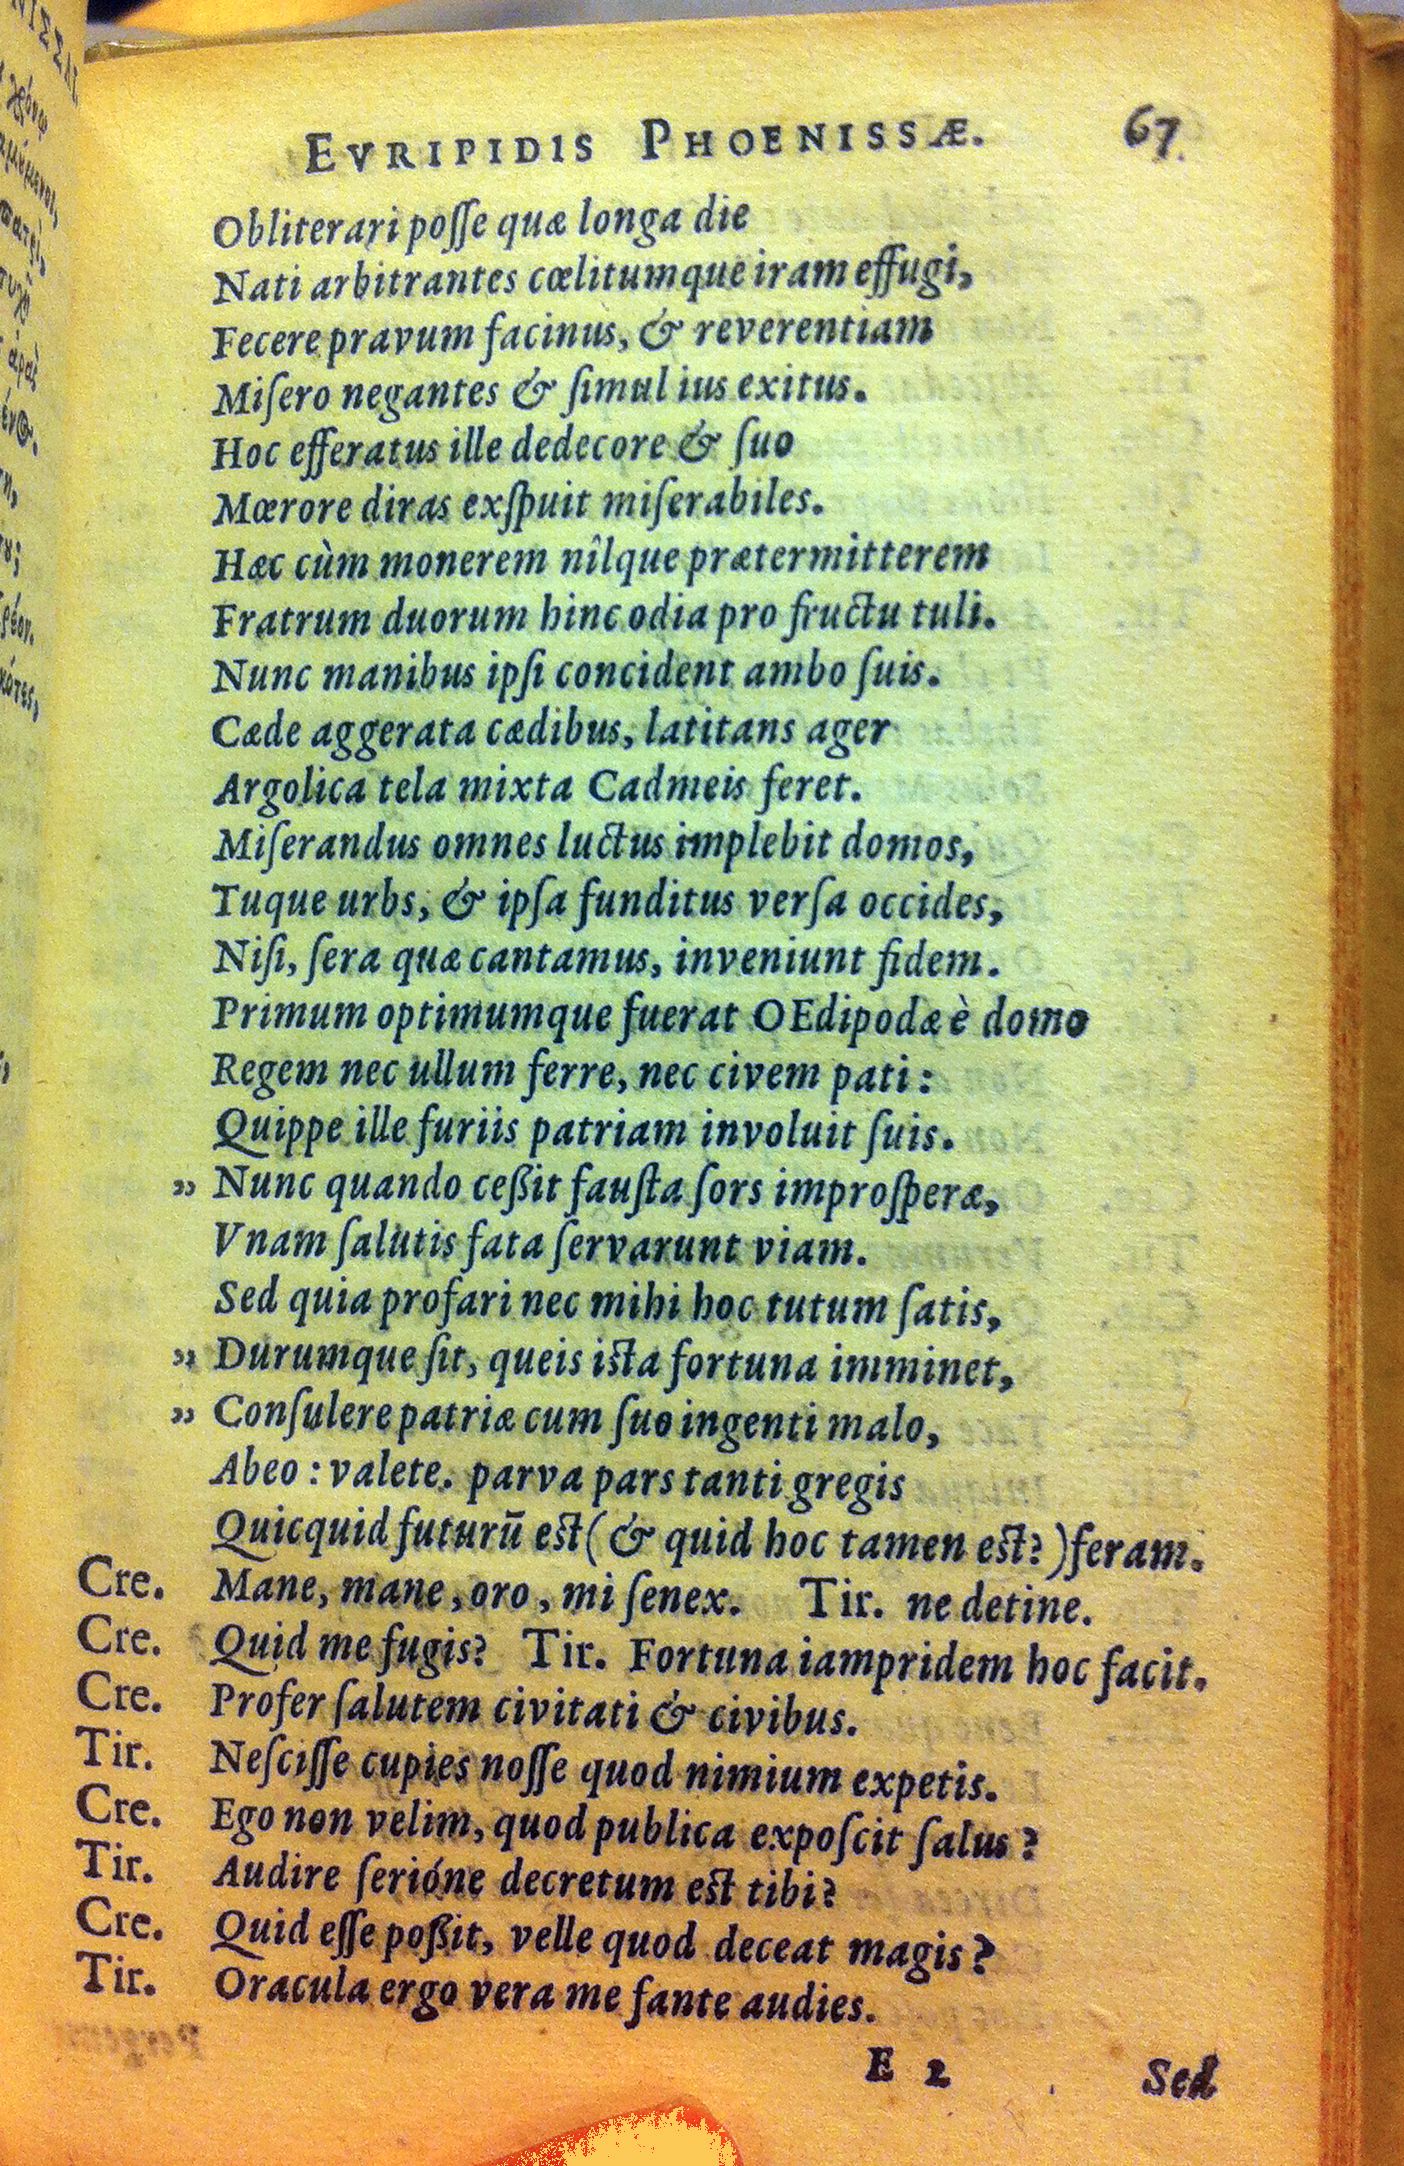 EVRIPIDIS PHOENISSÆ. 67
Obliterari poſſe quæ longa die
Nati arbitrantes cœlitumque iram effugi,
Fecere pravum facinus, & reverentiam
Miſero negantes & ſimul ius exitus.
Hoc efferatus ille dedecore & ſuo
Mœrore diras exſpuit miſerabiles.
Hæc cùm monerem nîlque prætermitterem
Fratrum duorum hinc odia pro fructu tuli.
Nunc manibus ipſi concident ambo ſuis.
Cæde aggerata cædibus, latitans ager
Argolica tela mixta Cadmeis feret.
Miſerandus omnes luctus implebit domos,
Tuque urbs, & ipſa funditus verſa occides,
Niſi, ſera quæ cantamus, inveniunt fidem.
Primum optimumque fuerat OEdipodæ è domo
Regem nec ullum ferre, nec civem pati:
Quippe ille furiis patriam involuit ſuis.
,, Nunc quando ceßit fauſta ſors improſperæ,
Vnam ſalutis fata ſervarunt viam.
Sed quia profari nec mihi hoc tutum ſatis,
,, Durumque ſit, queis iſta fortuna imminet,
,, Conſulere patriæ cum ſuo ingenti malo,
Abeo: valete. parva pars tanti gregis
Quicquid futurū eſt (& quid hoc tamen eſt?) feram.
Cre. Mane, mane, oro, mi ſenex. Tir. ne detine.
Cre. Quid me fugis? Tir. Fortuna iampridem hoc facit.
Cre. Profer ſalutem civitati & civibus.
Tir. Neſciſſe cupies noſſe quod nimium expetis.
Cre. Ego non velim, quod publica expoſcit ſalus?
Tir. Audire ſerióne decretum eſt tibi?
Cre. Quid eſſe poßit, velle quod deceat magis?
Tir. Oracula ergo vera me fante audies.
E 2 Sed